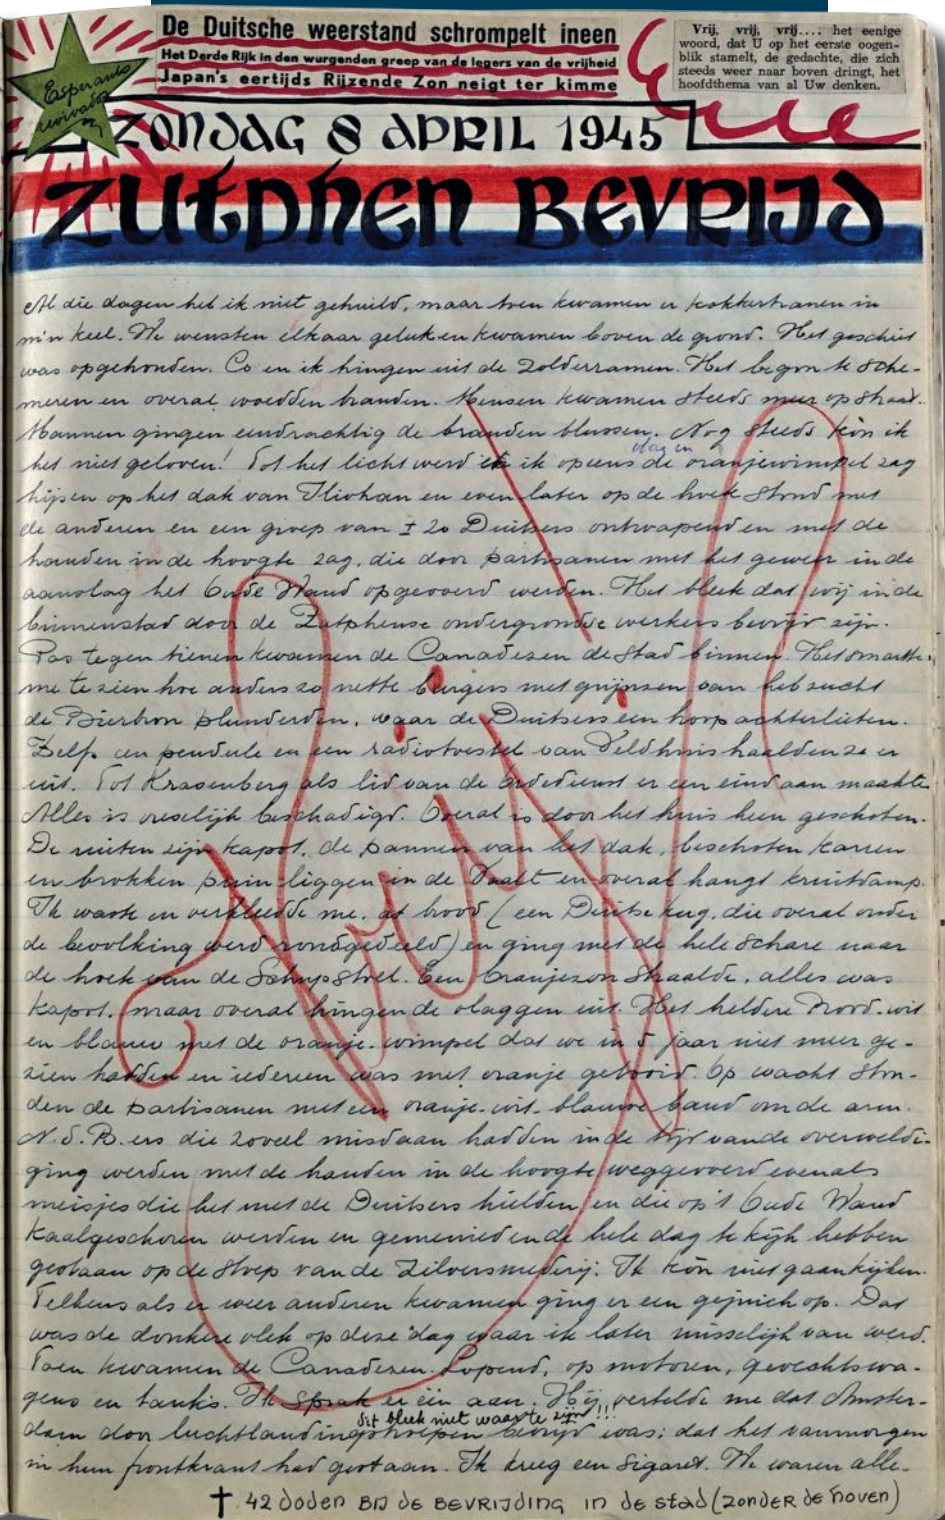 De Duitsche weerstand schrompelt ineen
Het Derde Rijk in den wurgenden greep van de legers van de vrijheid
Japan's eertijds Rijzende Zon neigt ter kimme
Vrij, vrij, vrij....: het eenige
woord, dat U op het eerste oogen-
blik stamelt, de gedachte, die zich
steeds weer naar boven dringt, het
hoofdthema van al Uw denken.
Esperanto
ZONDAG 8 APRIL 1945
ZUTPHEN BEVRIJD
Al die dagen heb ik niet gehuild, maar toen kwamen er krokkertranen in
m'n keel. We wensten elkaar geluk en kwamen boven de grond. Het geschut
was opgehouden. Co en ik hingen uit de zolderramen. Het begon te sche-
meren en overal woedden branden. Mensen kwamen steeds meer op straat.
Mannen gingen eendrachtig de branden blussen. Nog steeds kòn ik
het niet geloven! Tot het licht werd en ik opeens de vlag en oranjewimpel zag
hijsen op het dak van Ilivhan en even later op de hoek stond met
de anderen en een groep van ± 20 Duitsers ontwapend en met de
handen in de hoogte zag, die door partisanen met het geweer in de
aanslag het Oude Wand opgevoerd werden. Het bleek dat wij in de
binnenstad door de Zutphense ondergrondse werkers bevrijd zijn.
Pas tegen tienen kwamen de Canadezen de stad binnen. Het smartte
me te zien hoe anders zo nette burgers met grijnzen van hebzucht
de Bierbron plunderden, waar de Duitsers een hoop achterlieten.
Zelfs een pendule en een radiotoestel van Veldhuis haalden ze er
uit. Tot Krasenberg als lid van de Ordedienst er een eind aan maakte
Alles is vreselijk beschadigd. Overal is door het huis heen geschoten.
De ruiten zijn kapot, de pannen van het dak, beschoten karren
en brokken puin liggen in de Vaalt en overal hangt kruitdamp.
Ik waste en verkleedde me, at brood (een Duitse kug, die overal onder
de bevolking werd rondgedeeld) en ging met de hele schare naar
de hoek van de Schupstoel. Een Oranjezon straalde, alles was
kapot, maar overal hingen de vlaggen uit. Het heldere rood-wit
en blauw met de oranje-wimpel dat we in 5 jaar niet meer ge-
zien hadden en iedereen was met oranje getooid. Op wacht ston-
den de partisanen met een oranje-wit-blauwe band om de arm.
N.S.B.ers die zoveel misdaan hadden in de tijd van de overweldi-
ging werden met de handen in de hoogte weggevoerd evenals
meisjes die het met de Duitsers hielden en die op 't Oude Wand
kaalgeschoren werden en gemenied en de hele dag te kijk hebben
gestaan op de stoep van de Zilversmederij. Ik kòn niet gaan kijken.
Telkens als er weer anderen kwamen ging er een gejuich op. Dat
was de donkere vlek op deze dag waar ik later misselijk van werd.
Toen kwamen de Canadezen. Lopend, op motoren, gevechtswa-
gens en tanks. Ik sprak er één aan. Hij vertelde me dat Amster-
dit bleek niet waar te zijn!!!
dam door luchtlandingstroepen bevrijd was; dat het vanmorgen
in hun frontkrant had gestaan. Ik kreeg een sigaret. We waren alle-
Vrij!
† 42 doden bij de bevrijding in de stad (zonder de hoven)